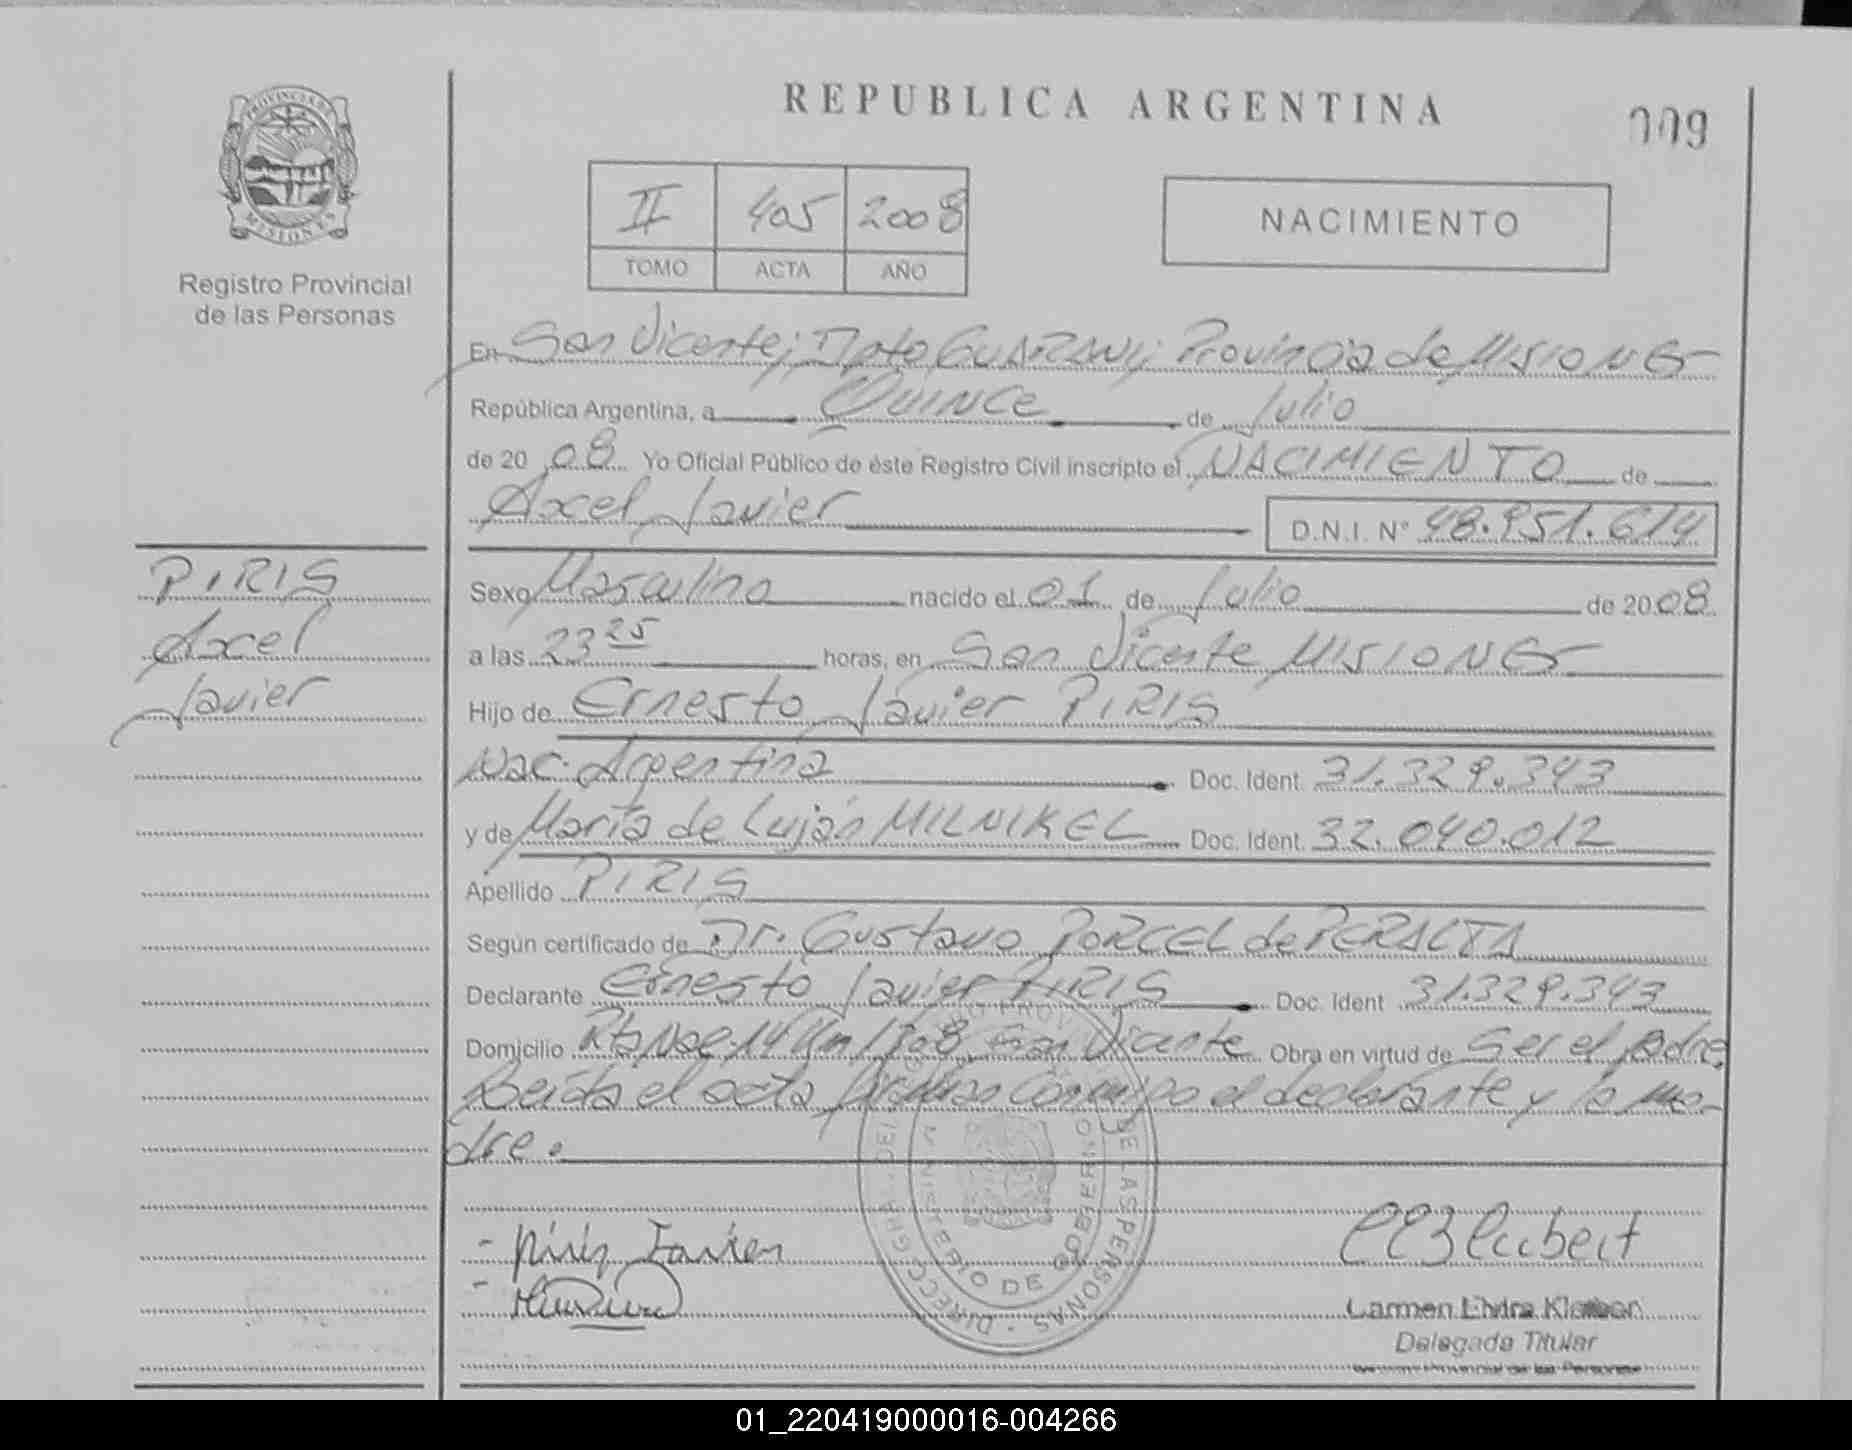 REPUBLICA ARGENTINA
009
PROVINCIA DE
MISIONES
Registro Provincial
de las Personas
II 405 2008
TOMO ACTA AÑO
NACIMIENTO
En San Vicente; Dpto GUARANI; Provincia de MISIONES
República Argentina, a QUINCE de Julio
de 20 08 Yo Oficial Público de éste Registro Civil inscripto el NACIMIENTO de
Axel Javier D.N.I. N° 48.951.614
PIRIS
Axel
Javier
Sexo Masculino nacido el 01 de Julio de 20 08
a las 23 25 horas, en San Vicente MISIONES
Hijo de Ernesto Javier PIRIS
Nac. Argentina Doc. Ident. 31.329.343
y de María de Luján MILNIKEL Doc. Ident. 32.040.012
Apellido PIRIS
Según certificado de Dr. Gustavo PORCEL de PERALTA
Declarante Ernesto Javier PIRIS Doc. Ident 31.329.343
Domicilio Rta Nac. 14 Km San Vicente Obra en virtud de Ser el padre,
Leída el acta firman conmigo el declarante y la ma-
dre.
Piris Javier
Carmen Elvira
Delegada Titular
Provincial de las Personas
DE LAS PERSONAS
MINISTERIO DE GOBIERNO
01_220419000016-004266